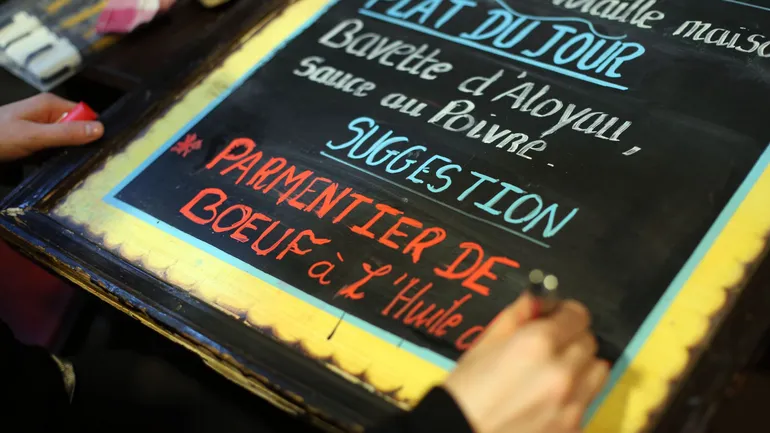 maison
PLAT DU JOUR
Bavette d'Aloyau,
Sauce au Poivre.
SUGGESTION
PARMENTIER DE
BOEUF à L'Huile